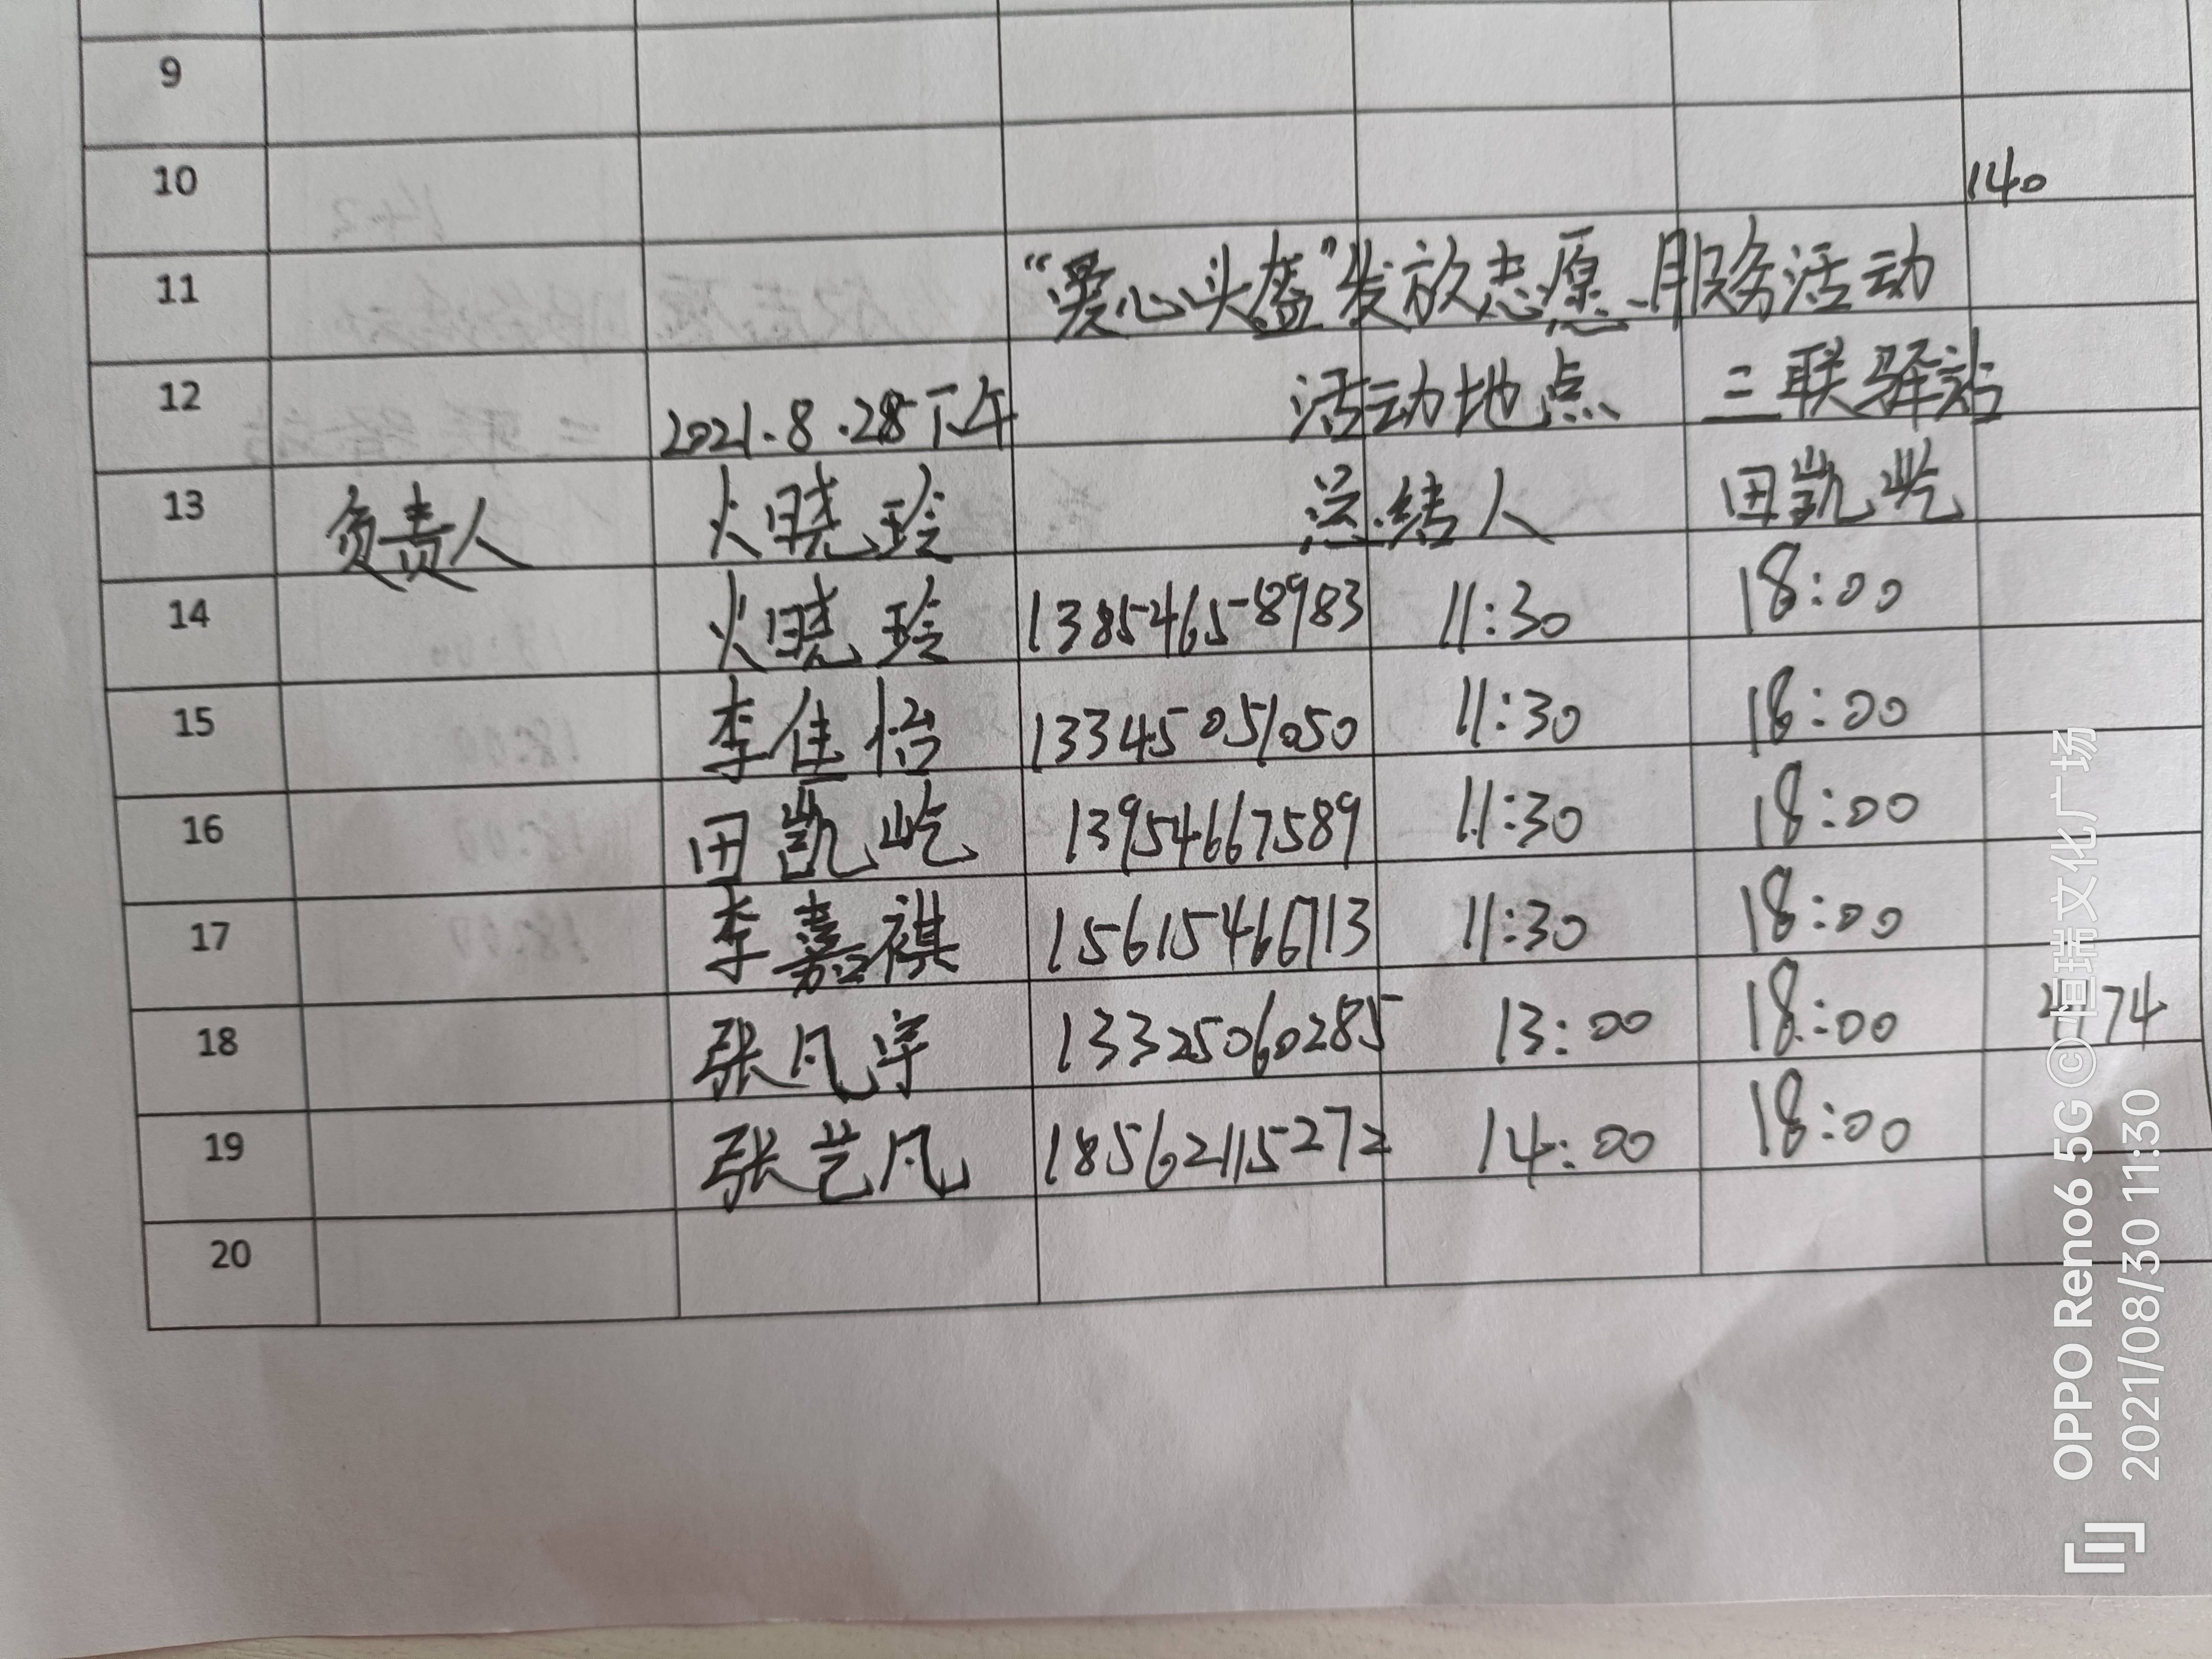 9
10 140
11 “爱心头盔”发放志愿服务活动
12 2021.8.28下午 活动地点 三联驿站
13 负责人 火晓玲 总结人 田凯屹
14 火晓玲 13854658983 11:30 18:00
15 李佳怡 13345051050 11:30 18:00
16 田凯屹 13954667589 11:30 18:00
17 李嘉祺 15615466713 11:30 18:00
18 张凡宇 13325060285 13:00 18:00
19 张艺凡 18562115272 14:00 18:00
20
OPPO Reno6 5G © 恒瑞文化广场
2021/08/30 11:30